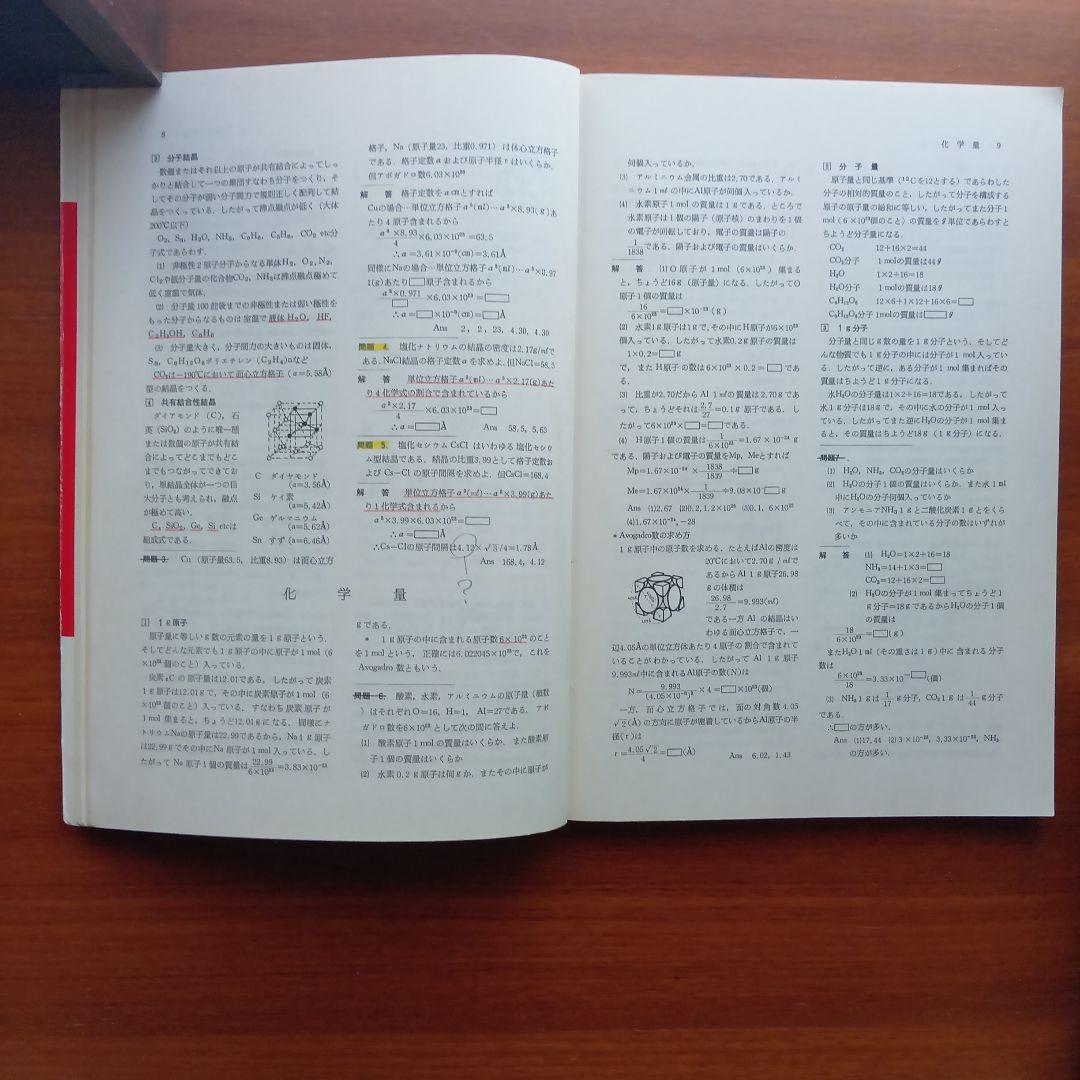 8
[3] 分子結晶
数個またはそれ以上の原子が共有結合によってしっ
かりと結合して一つの集団すなわち分子をつくり, そ
してその分子が弱い分子間力で規則正しく配列して結
晶をつくっている. したがって沸点融点が低く (大体
200℃以下)
O₂, S₈, H₂O, NH₃, C₆H₆, C₃H₈, CO₂ etc分
子式であらわす.
(1) 非極性2原子分子からなる単体H₂, O₂, N₂,
Cl₂や低分子量の化合物CO₂, NH₃は沸点融点極めて
低く室温で気体.
(2) 分子量100前後までの非極性または弱い極性を
もった分子からなるものは室温で液体H₂O, HF,
C₂H₅OH, C₆H₆
(3) 分子量大きく, 分子間力の大きいものは固体,
型の結晶をつくる.
CO₂は−190℃において面心立方格子 (a=5.58Å)
[4] 共有結合性結晶
ダイアモンド (C), 石
英 (SiO₂) のように唯一種
または数個の原子が共有結
合によってどこまでもどこ
までもつながってできてお
り, 単結晶全体が一つの巨
大分子とも考えられ, 融点
が極めて高い.
C, SiO₂, Ge, Si etcは
組成式である.
C ダイヤモンド
(a=3.56Å)
Si ケイ素
(a=5.42Å)
Ge ゲルマニウム
(a=5.62Å)
Sn すず (a=6.46Å)
問題3. Cu (原子量63.5, 比重8.93) は面心立方
格子, Na (原子量23, 比重0.971) は体心立方格子
である. 格子定数aおよび原子半径rはいくらか.
但アボガドロ数6.03×10²³
解 答 格子定数をa㎝とすれば
Cuの場合…単位立方格子a³(㎖)…a³×8.93(g)あ
たり4原子含まれるから
a³×8.93/4×6.03×10²³=63.5
∴a=3.61×10⁻⁸(㎝)=3.61Å
同様にNaの場合…単位立方格子a³(㎖)…a³×0.97
1(g)あたり□原子含まれるから
a³×0.971/□×6.03×10²³=□
∴a=□×10⁻⁸(㎝)=□
Ans 2, 2, 23, 4.30, 4.30
問題4. 塩化ナトリウムの結晶の密度は2.17g/㎖で
ある. NaCl結晶の格子定数aを求めよ. 但NaCl=58.5
解 答 単位立方格子a³(㎖)…a³×2.17(g)あた
り4化学式の割合で含まれているから
a³×2.17/4×6.03×10²³=□
∴a=□Å Ans 58.5, 5.63
問題5. 塩化セシウムCsClはいわゆる塩化セシウ
ム型結晶である. 結晶の比重3.99として格子定数お
よびCs−Clの原子間隔を求めよ. 但CsCl=168.4
解 答 単位立方格子a³(㎖)…a³×3.99(g)あた
り1化学式含まれるから
a³×3.99×6.03×10²³=□
∴a=□Å
∴Cs−Clの原子間隔は4.12×√3/4=1.78Å
Ans 168.4, 4.12
?
化 学 量
[1] 1g原子
原子量に等しいg数の元素の量を1g原子という.
そしてどんな元素でも1g原子の中に原子が1mol (6
×10²³個のこと) 入っている.
炭素₆Cの原子量は12.01である. したがって炭素
1g原子は12.01gで, その中に炭素原子が1mol (6
×10²³個のこと) 入っている. すなわち炭素原子が
1mol集まると, ちょうど12.01gになる. 同様にナ
トリウムNaの原子量は22.99であるから, Na 1g原子
は22.99gでその中にNa原子が1mol入っている. し
たがってNa原子1個の質量は22.99/6×10²³=3.83×10⁻²³
gである.
* 1g原子の中に含まれる原子数6×10²³のこと
を1molという. 正確には6.022045×10²³で, これを
Avogadro数ともいう.
問題6. 酸素, 水素, アルミニウムの原子量 (概数)
はそれぞれO=16, H=1, Al=27である. アボ
ガドロ数を6×10²³として次の間に答えよ.
(1) 酸素原子1molの質量はいくらか. また酸素原
子1個の質量はいくらか
(2) 水素0.2g原子は何gか. またその中に原子が
化 学 量 9
何個入っているか.
(3) アルミニウム金属の比重は2.70である. アルミ
ニウム1㎖の中にAl原子が何個入っているか.
(4) 水素原子1molの質量は1gである. ところで
水素原子は1個の陽子 (原子核) のまわりを1個
の電子が回転しており, 電子の質量は陽子の
1/1838である. 陽子および電子の質量はいくらか.
解 答 (1) O原子が1mol (6×10²³) 集まる
と, ちょうど16g (原子量) になる. したがってO
原子1個の質量は
16/6×10²³=□×10⁻²³(g)
(2) 水素1g原子は1gで, その中にH原子が6×10²³
個入っている. したがって水素0.2g原子の質量は
1×0.2=□g
で, またH原子の数は6×10²³×0.2=□であ
る.
(3) 比重が2.70だからAl 1㎖の質量は2.70gであ
って, ちょうどそれは2.7/27=0.1g原子である. し
たがって6×10²³×□=□である.
(4) H原子1個の質量は1/6×10²³=1.67×10⁻²⁴g
である. 陽子および電子の質量をMp, Meとすれば
Mp=1.67×10⁻²⁴×1838/1839≑□g
Me=1.67×10²⁴×1/1839≑9.08×10⁻□g
Ans (1)2.67 (2)0.2, 1.2×10²³ (3)0.1, 6×10²²
(4)1.67×10⁻²⁴, −28
* Avogadro数の求め方
1g原子中の原子数を求める. たとえばAlの密度は
20℃において2.70g/㎖で
あるからAl 1g原子26.98
gの体積は
26.98/2.7=9.993(㎖)
である一方Alの結晶はい
わゆる面心立方格子で, 一
辺4.05Åの単位立方体あたり4原子の割合で含まれて
いることがわかっている. したがってAl 1g原子
9.993㎖中に含まれるAl原子の数(N)は
N=9.993/(4.05×10⁻⁸)³×4=□×10²³(個)
一方, 面心立方格子では, 面の対角数4.05
√2(Å)の方向に原子が密着しているからAl原子の半
径(r)は
r=4.05√2/4=□(Å) Ans 6.02, 1.43
[2] 分 子 量
原子量と同じ基準 (¹²Cを12とする) であらわした
分子の相対的質量のこと, したがって分子を構成する
原子の原子量の総和に等しい. したがってまた分子1
mol (6×10²³個のこと) の質量をg単位であらわすと
ちょうど分子量になる.
CO₂ 12+16×2=44
CO₂分子 1molの質量は44g
H₂O 1×2+16=18
H₂O分子 1molの質量は18g
C₆H₁₂O₆ 12×6+1×12+16×6=□
C₆H₁₂O₆分子1molの質量は□g
[3] 1g分子
分子量と同じg数の量を1g分子という. そしてど
んな物質でも1g分子の中には分子が1mol入ってい
る. したがって逆に, ある分子が1mol集まればその
質量はちょうど1g分子になる.
水H₂Oの分子量は1×2+16=18である. したがって
水1g分子は18gで, その中に水の分子が1mol入っ
ている. したがってまた逆にH₂Oの分子が1mol集ま
ると, その質量はちょうど18g (1g分子) になる.
問題7.
(1) H₂O, NH₃, CO₂の分子量はいくらか
(2) H₂Oの分子1個の質量はいくらか. また水1㎖
中にH₂Oの分子何個入っているか
(3) アンモニアNH₃1gと二酸化炭素1gとをくら
べて, その中に含まれている分子の数はいずれが
多いか
解 答 (1) H₂O=1×2+16=18
NH₃=14+1×3=□
CO₂=12+16×2=□
(2) H₂Oの分子が1mol集まってちょうど1
g分子=18gであるからH₂Oの分子1個
の質量は
18/6×10²³=□(g)
またH₂O 1㎖ (その重さは1g) 中に含まれる分子
数は
6×10²³/18=3.33×10□(個)
(3) NH₃1gは1/17g分子, CO₂1gは1/44g分子
である.
∴□の方が多い.
Ans (1)17, 44 (2)3×10⁻²³, 3.33×10²², NH₃
の方が多い.